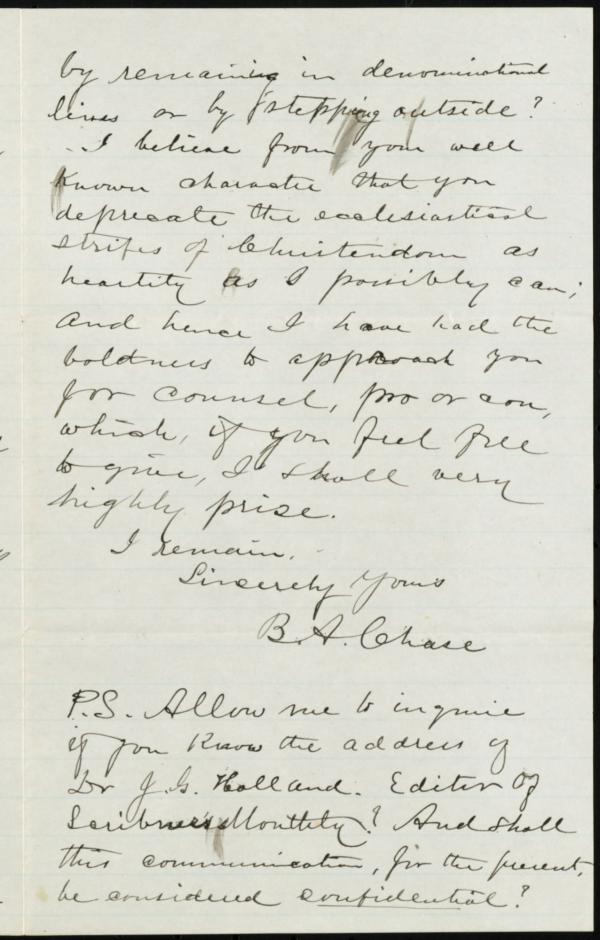 by remaining in denominational
lines or by stepping outside?
- I believe from your well
known character that you
deprecate the ecclesiastical
strifes of Christendom as
heartity as I possibly can;
and hence I have had the
boldness to approach you
for counsel, pro or con,
which, if you feel free
to give, I shall very
highly prize.
I remain,
Sincerely Yours
B. A. Chase
P.S. Allow me to inquire
if you know the address of
Dr J. G. Holland. Editor of
Scribners Monthly? And shall
this communication, for the present,
be considered confidential?